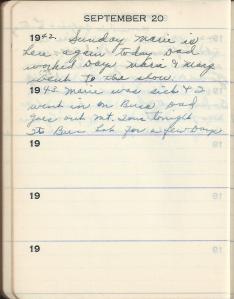 SEPTEMBER 20
1942 Sunday Marie is
here again today Dad
worked Days Marie & Marg
went to the show.
1943 Marie was sick & I
went in on Buss Dad
goes out tonight
to Lab for a few Days
19
19
19